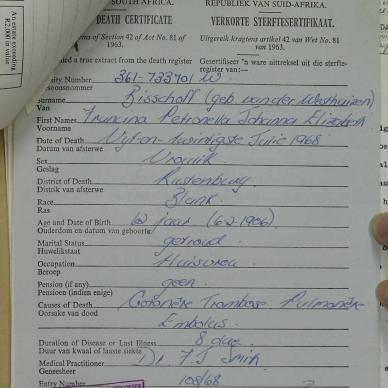 SOUTH AFRICA. REPUBLIEK VAN SUID-AFRIKA.
DEATH CERTIFICATE VERKORTE STERFTESERTIFIKAAT.
of Section 42 of Act No. 81 of 1963. Uitgereik kragtens artikel 42 van Wet No. 81 van 1963.
a true extract from the death register Gesertifiseer 'n ware uittreksel uit die sterfte-register van:—
Number 361-733701 W
Persoonsnommer
Surname Bisschoff (geb van der Westhuizen)
Van
First Names Francina Petronella Johanna Elizabeth
Voorname
Date of Death Vyf-en-twintigste Julie 1968
Datum van afsterwe
Sex Vroulik
Geslag
District of Death Rustenburg
Distrik van afsterwe
Race Blank
Ras
Age and Date of Birth 62 jaar (6-2-1906)
Ouderdom en datum van geboorte
Marital Status getroud
Huwelikstaat
Occupation Huisvrou
Beroep
Pension (if any) geen
Pensioen (indien enige)
Causes of Death Coronêre Trombose Pulmonêre
Oorsake van dood Embolus.
Duration of Disease or Last Illness 8 dae.
Duur van kwaal of laaste siekte
Medical Practitioner Dr F.J. Smith
Geneesheer
Entry Number 109/68